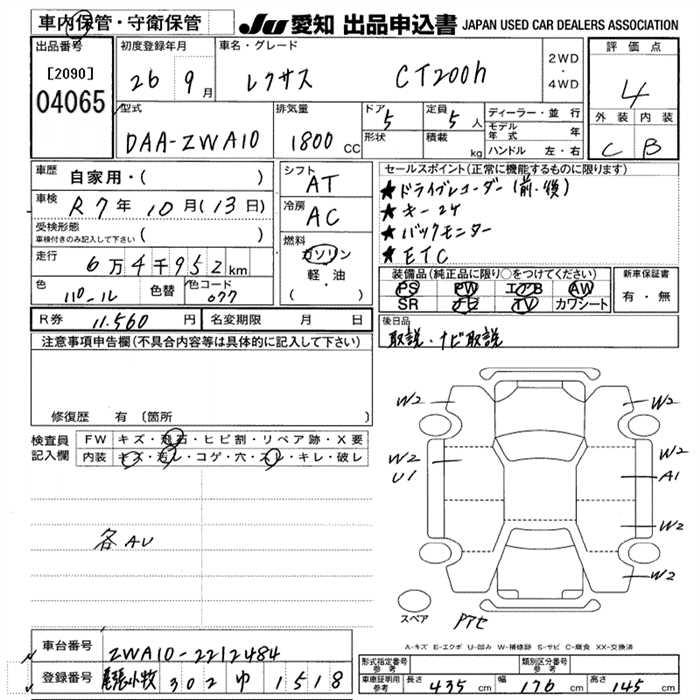 車内保管・守衛保管
JU 愛知 出品申込書 JAPAN USED CAR DEALERS ASSOCIATION
出品番号 [2090] 04065
初度登録年月 26 9月
車名・グレード レクサス CT200h
2WD ・ 4WD
評価点 4
外装 内装
C B
型式 DAA-ZWA10
排気量 1800 CC
ドア 5
形状
定員 5人
積載 kg
ディーラー・並行
モデル年式 年
ハンドル 左・右
車歴 自家用・( )
車検 R7年10月(13日)
受検形態 車検付きのみ記入して下さい ( )
走行 6万4千952km
色 パール 色替 色コード 077
シフト AT
冷房 AC
燃料 ガソリン
軽・油
( )
セールスポイント(正常に機能するものに限ります)
★ドライブレコーダー(前・後)
★キー2ケ
★バックモニター
★ETC
装備品(純正品に限り○をつけてください)
PS PW エアB AW
SR ナビ TV カワシート
新車保証書
有・無
R券 11.560円 名変期限 月 日
後日品
取説・ナビ取説
注意事項申告欄(不具合内容等は具体的に記入して下さい)
修復歴 有 〔箇所 〕
検査員記入欄
FW キズ・飛石・ヒビ割・リペア跡・X要
内装 キズ・汚レ・コゲ・穴・スレ・キレ・破レ
各AU
W2 W2
W2 U1
W2 A1
W2
W2
スペア
Pアセ
A-キズ E-エクボ U-凹み W-補修跡 S-サビ C-腐食 XX-交換済
車台番号 ZWA10-2212484
登録番号 尾張小牧 302 ゆ 1518
形式指定番号 参考
類別区分番号 参考
車庫証明用 参考 長さ 435cm 幅 176cm 高さ 145cm